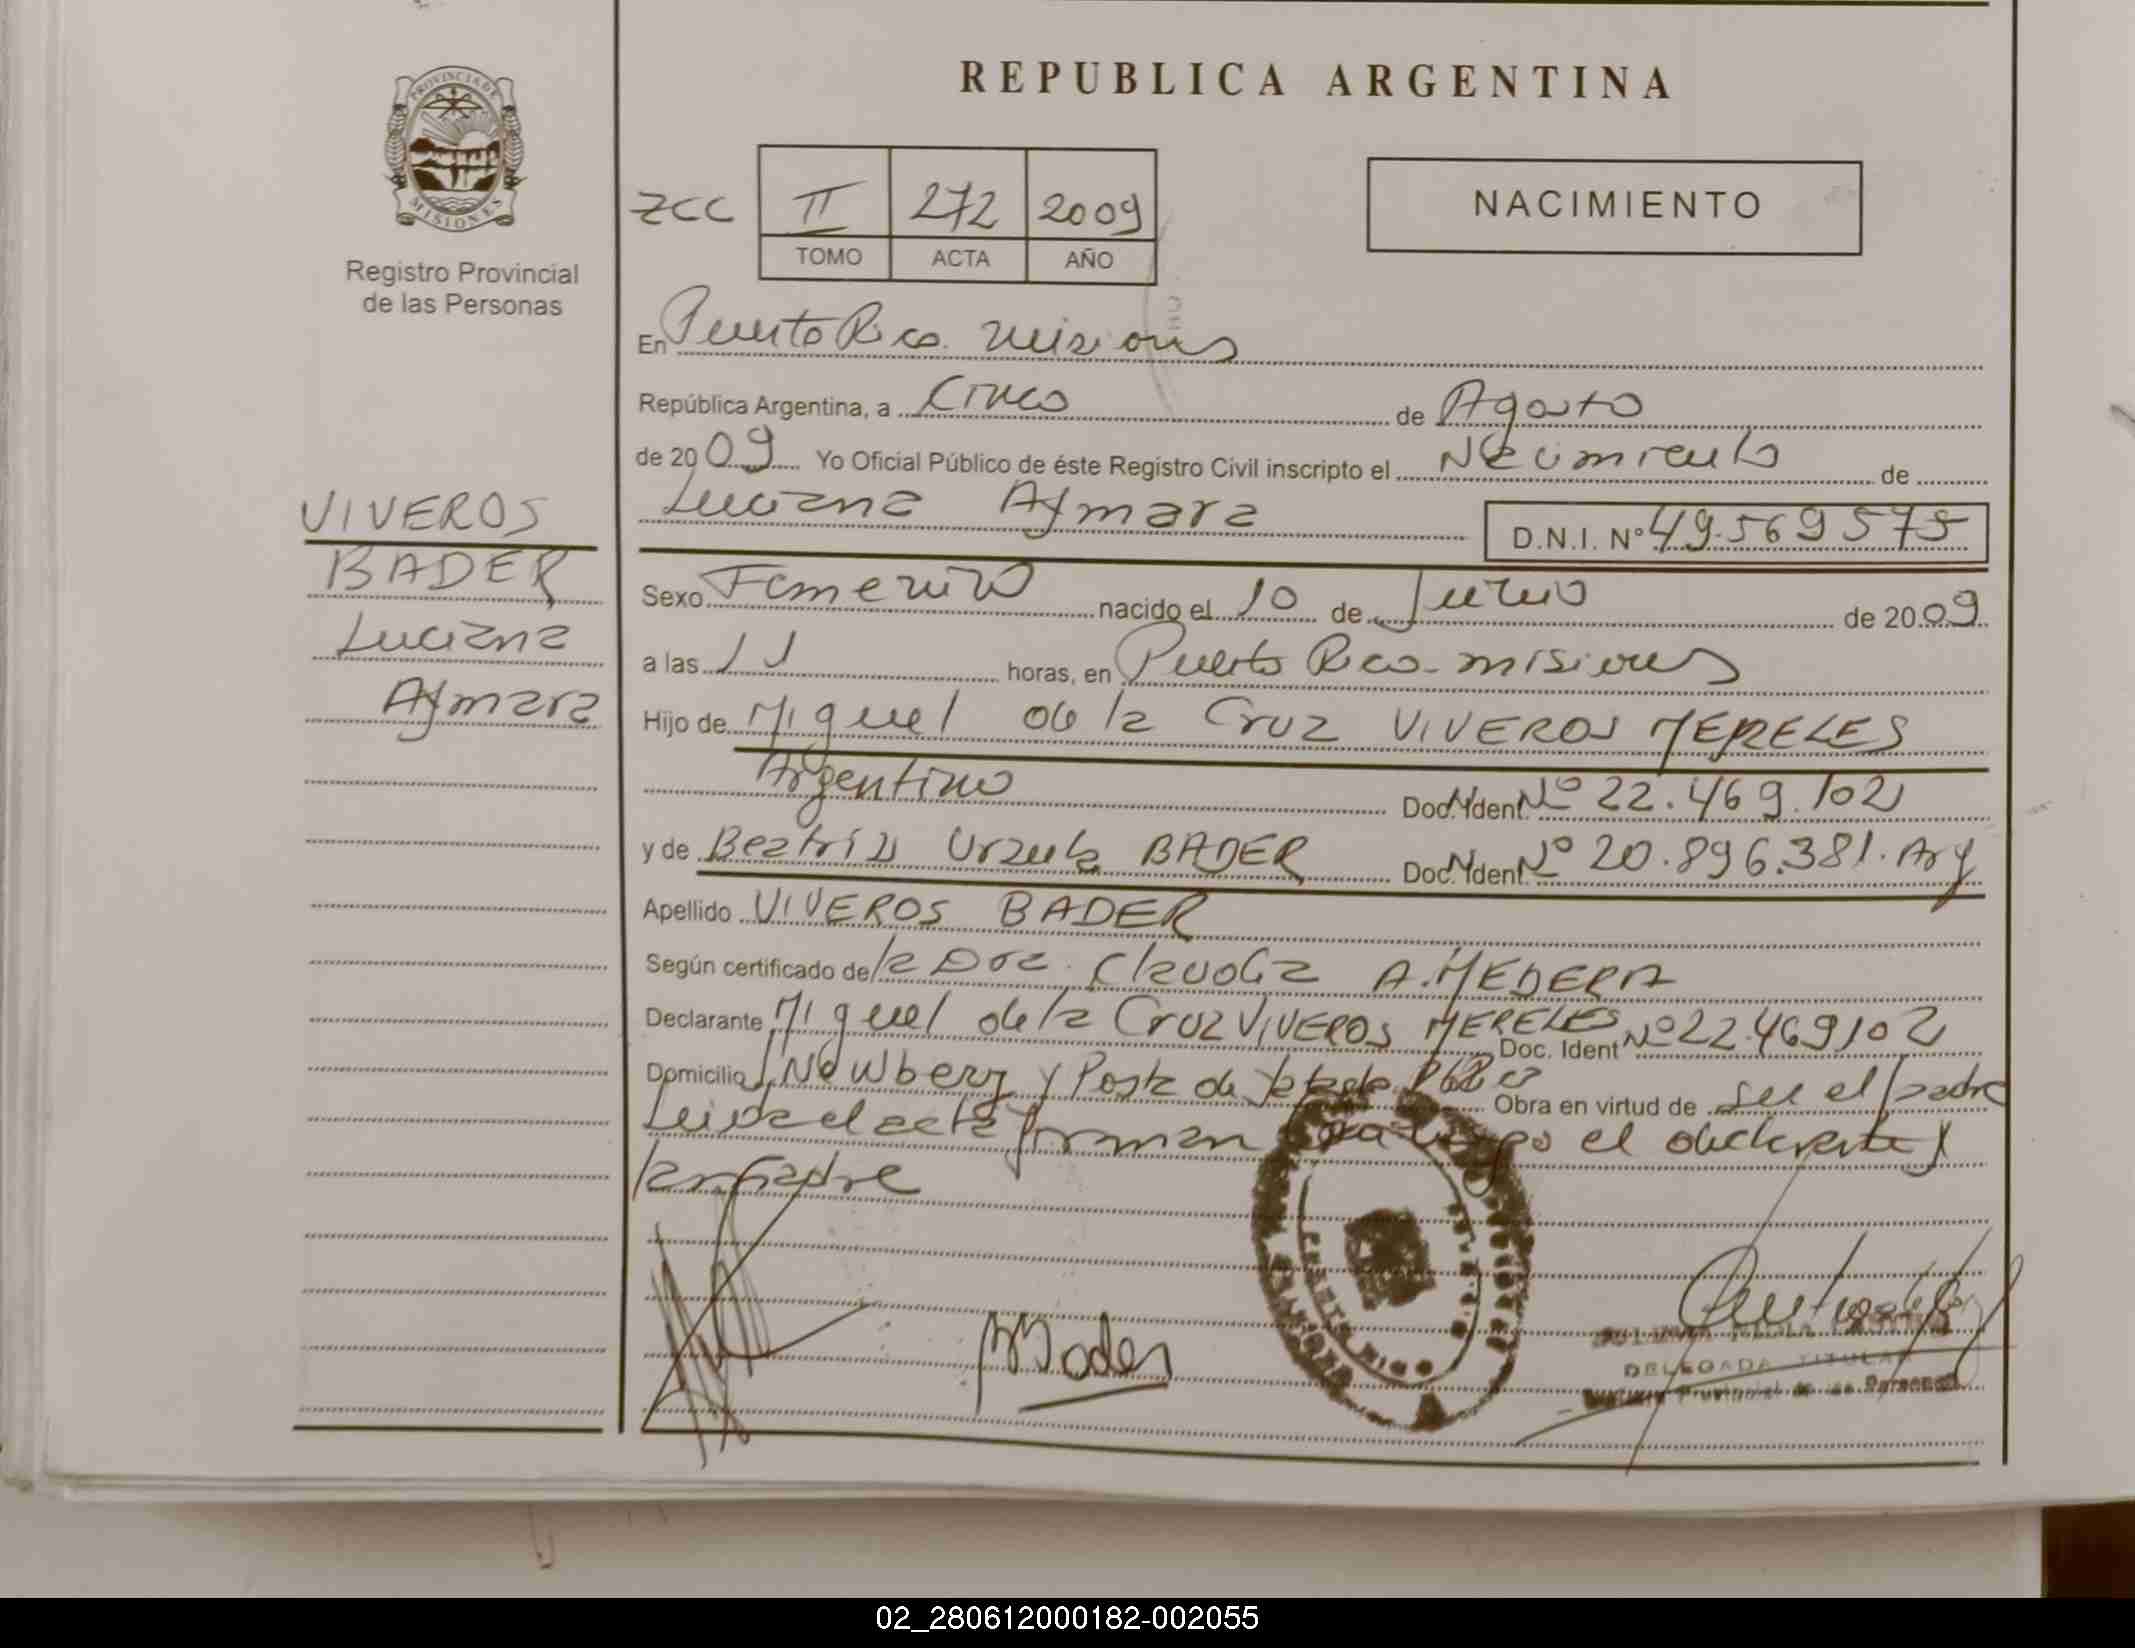 PROVINCIA DE
MISIONES
Registro Provincial
de las Personas
VIVEROS
BADER
Luciana
Aymara
REPUBLICA ARGENTINA
ZCC II 272 2009
TOMO ACTA AÑO
NACIMIENTO
En Puerto Rico. Misiones
República Argentina, a Cinco de Agosto
de 2009 Yo Oficial Público de éste Registro Civil inscripto el Nacimiento de
Luciana Aymara D.N.I. Nº 49.569575
Sexo Femenino nacido el 10 de Junio de 2009
a las 11 horas, en Puerto Rico - misiones
Hijo de Miguel de la Cruz VIVEROS MERELES
Argentino Doc. Ident. Nº 22.469.102
y de Beatriz Ursula BADER Doc. Ident. Nº 20.896.381. Arg
Apellido VIVEROS BADER
Según certificado de la Dra. Claudia A. MEDERA
Declarante Miguel de la Cruz VIVEROS MERELES Doc. Ident Nº 22.469102
Domicilio J. Newbery y Posta de Obra en virtud de ser el padre
Leida el acta firman el declarante y
la madre
Bader
DELEGADA TITULAR
Provincial de las Personas
02_280612000182-002055